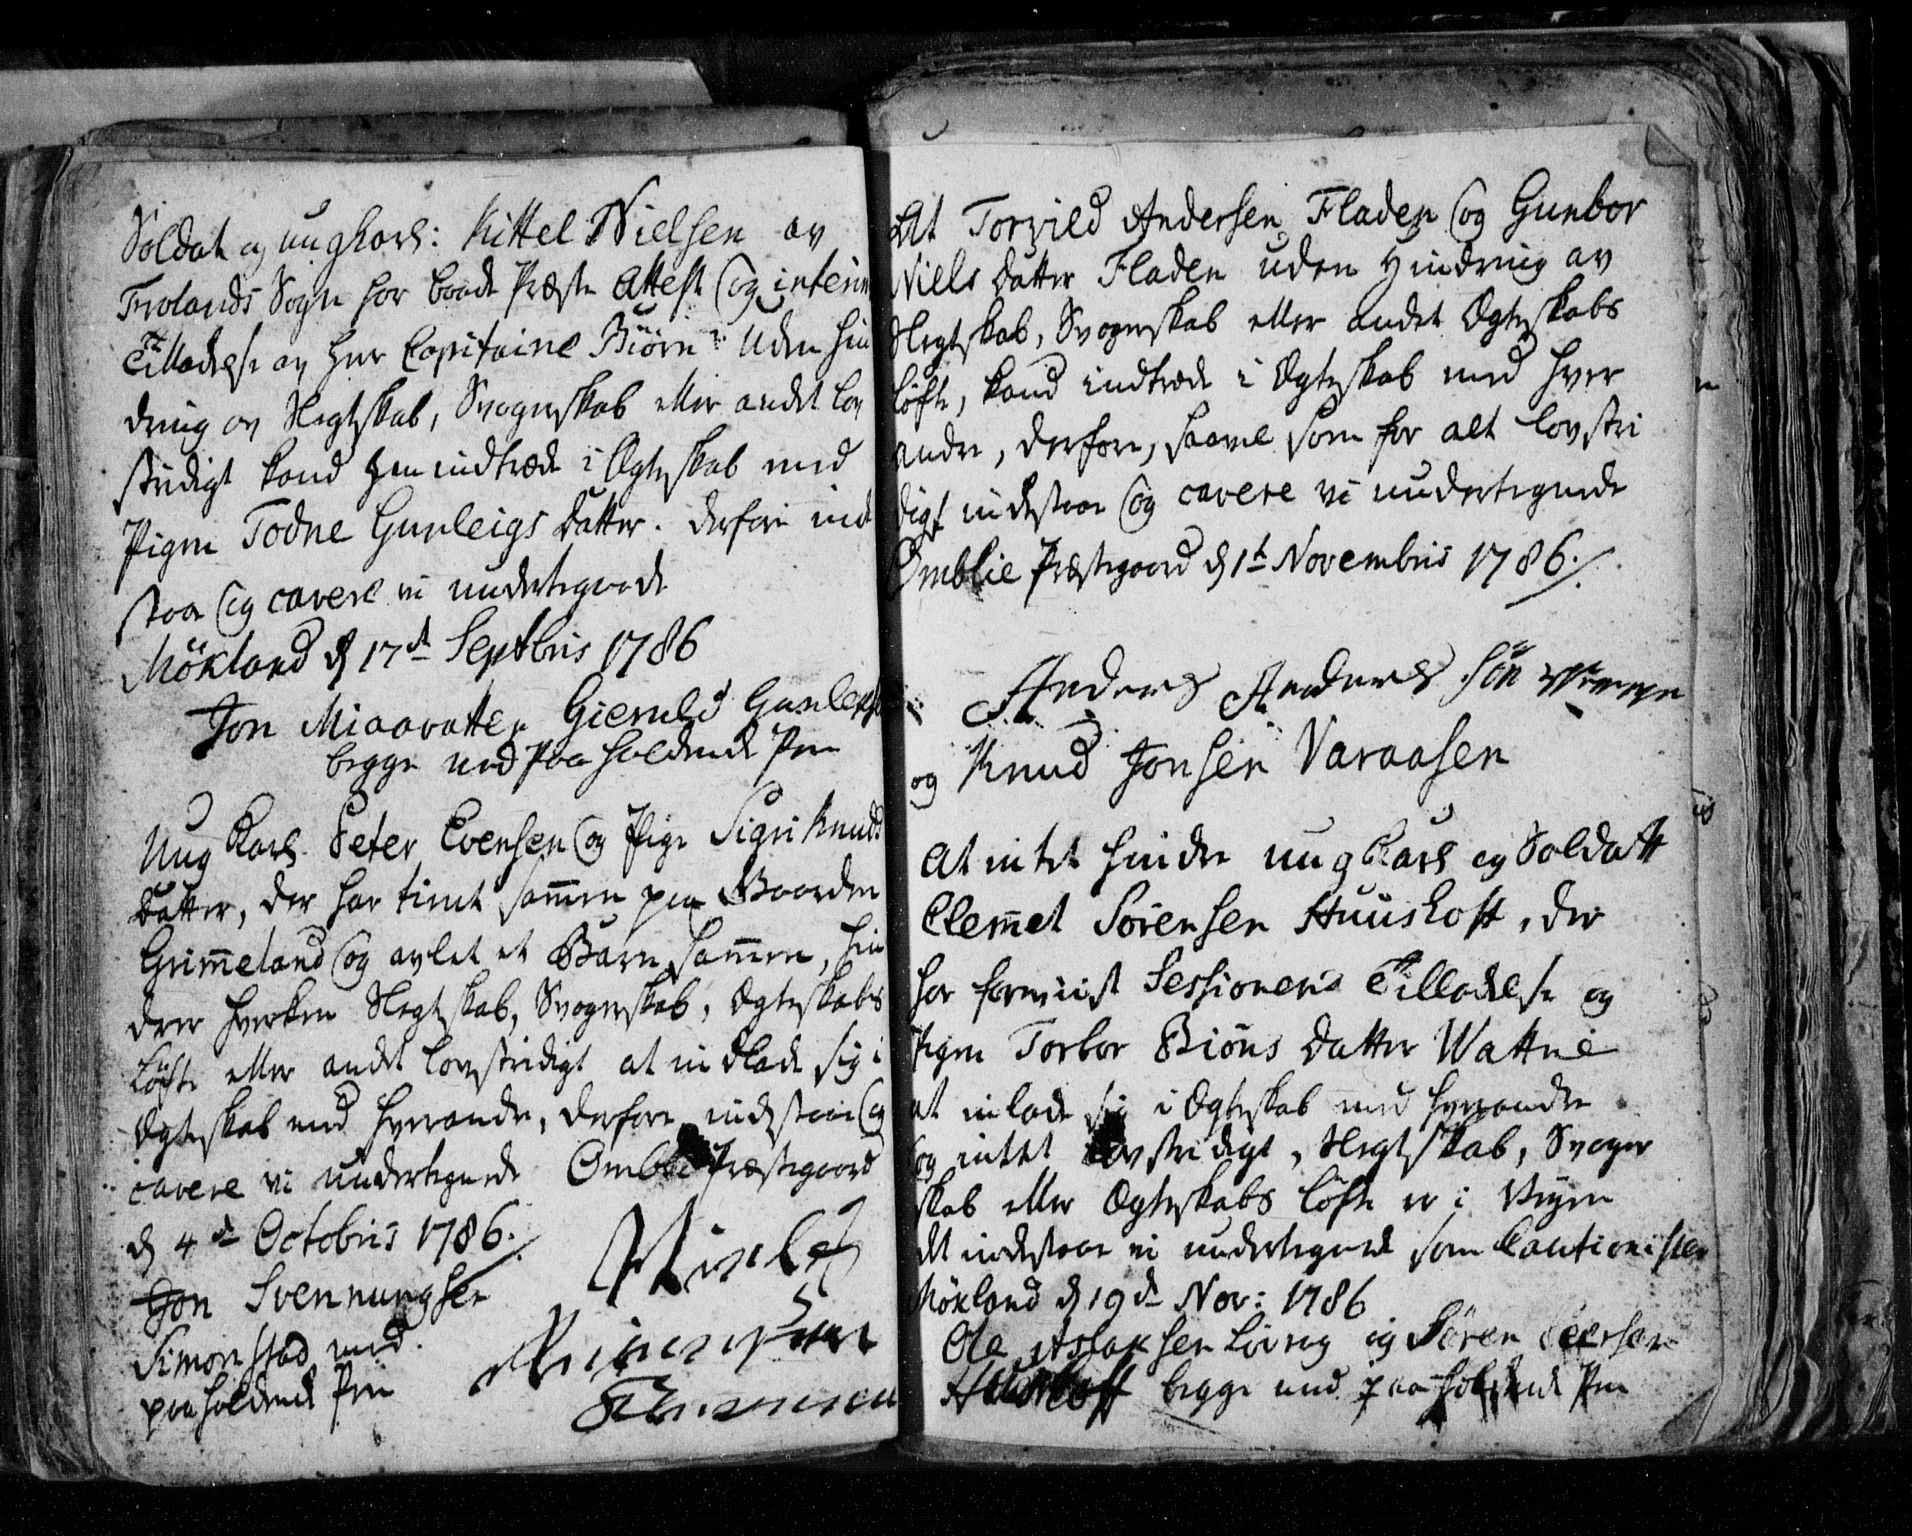 Soldat og ungkarl: Kittel Nielsen av
Frolands Sogn har baade Præste Attest og interim
Tilladelse av Her Capitaine Biörn: Uden hin
dring av Slegtskab, Svogerskab eller andet lov
stridigt kand han indtræde i Ægteskab med
Pigen Todne Gunleigs Datter. derfore inde
staar og cavere vi undertegnede
Mökland d 17de Septbris 1786
Jon Miaavatten Gieruld Gunleigs
begge med paaholdende Pen
Ung Karl Peter Evensen og Pige Sigri Knuds
Datter, der har tient sammen paa Gaarden
Grimeland og avlet et Barn sammen, hin
drer hverken Slegtskab, Svogerskab, Ægteskabs
Löfte eller andet lovstridigt at indlade sig i
Ægteskab med hverandre, derfore indestaar og
cavere vi undertegnede Omblie Præstegaard
d 4de Octobris 1786.
Jon Svennungsen
Simonstad med
paaholdende Pen
At Torvild Andersen Fladen og Gunbor
Niels Datter Fladen uden Hindring av
Slegtskab, Svogerskab eller andet Ægteskabs
löfte, kand indtræde i Ægteskab med hver
andre, derfore, saavel som for alt lovstri
digt indestaar og cavere vi undertegnede
Omblie Præstegaard d 1t Novembris 1786.
Anders Anders Sön
og Knud Jonsen Varaasen
At intet hindre ung Karl og Soldatt
Clemet Sörensen Huuskoft, der
har foreviist Sessionens Tilladelse og
Pigen Torbor Biöns Datter Wattne
at inlade sig i Ægteskab med hverandre
og intet lovstridigt, Slegtskab, Svoger
skab eller Ægteskabs löfte er i Veyen
det indestaar vi undertegnede som Cautionister
Mökland d 19de Nov: 1786
Ole Aslaksen Lövrig og Sören
begge med paaholdende Pen